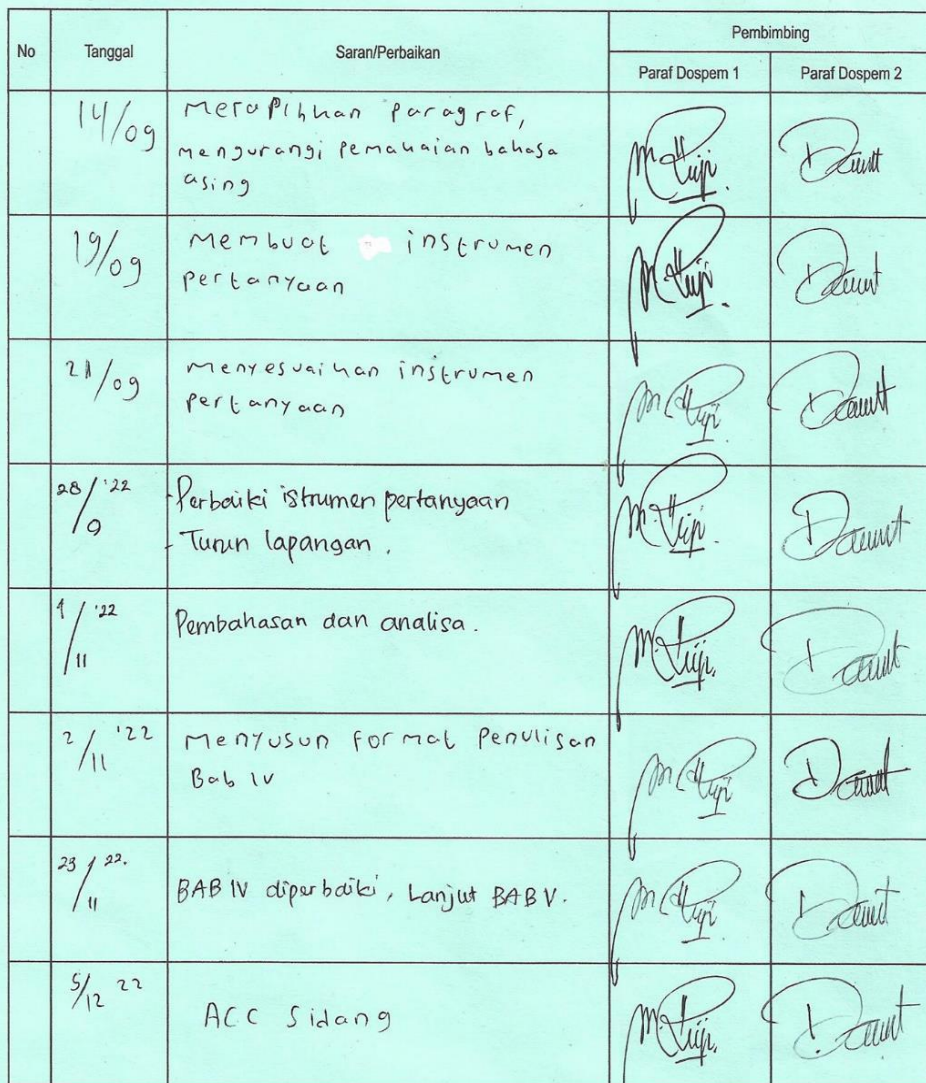 No
Tanggal
Saran/Perbaikan
Pembimbing
Paraf Dospem 1
Paraf Dospem 2
14/09
Merapihkan paragraf,
mengurangi pemakaian bahasa
asing
19/09
Membuat instrumen
pertanyaan
21/09
Menyesuaikan instrumen
pertanyaan
28/9 '22
- Perbaiki istrumen pertanyaan
- Turun lapangan.
1/11 '22
Pembahasan dan analisa.
2/11 '22
Menyusun format Penulisan
Bab IV
23/11 22.
BAB IV diperbaiki, Lanjut BAB V.
5/12 22
ACC Sidang